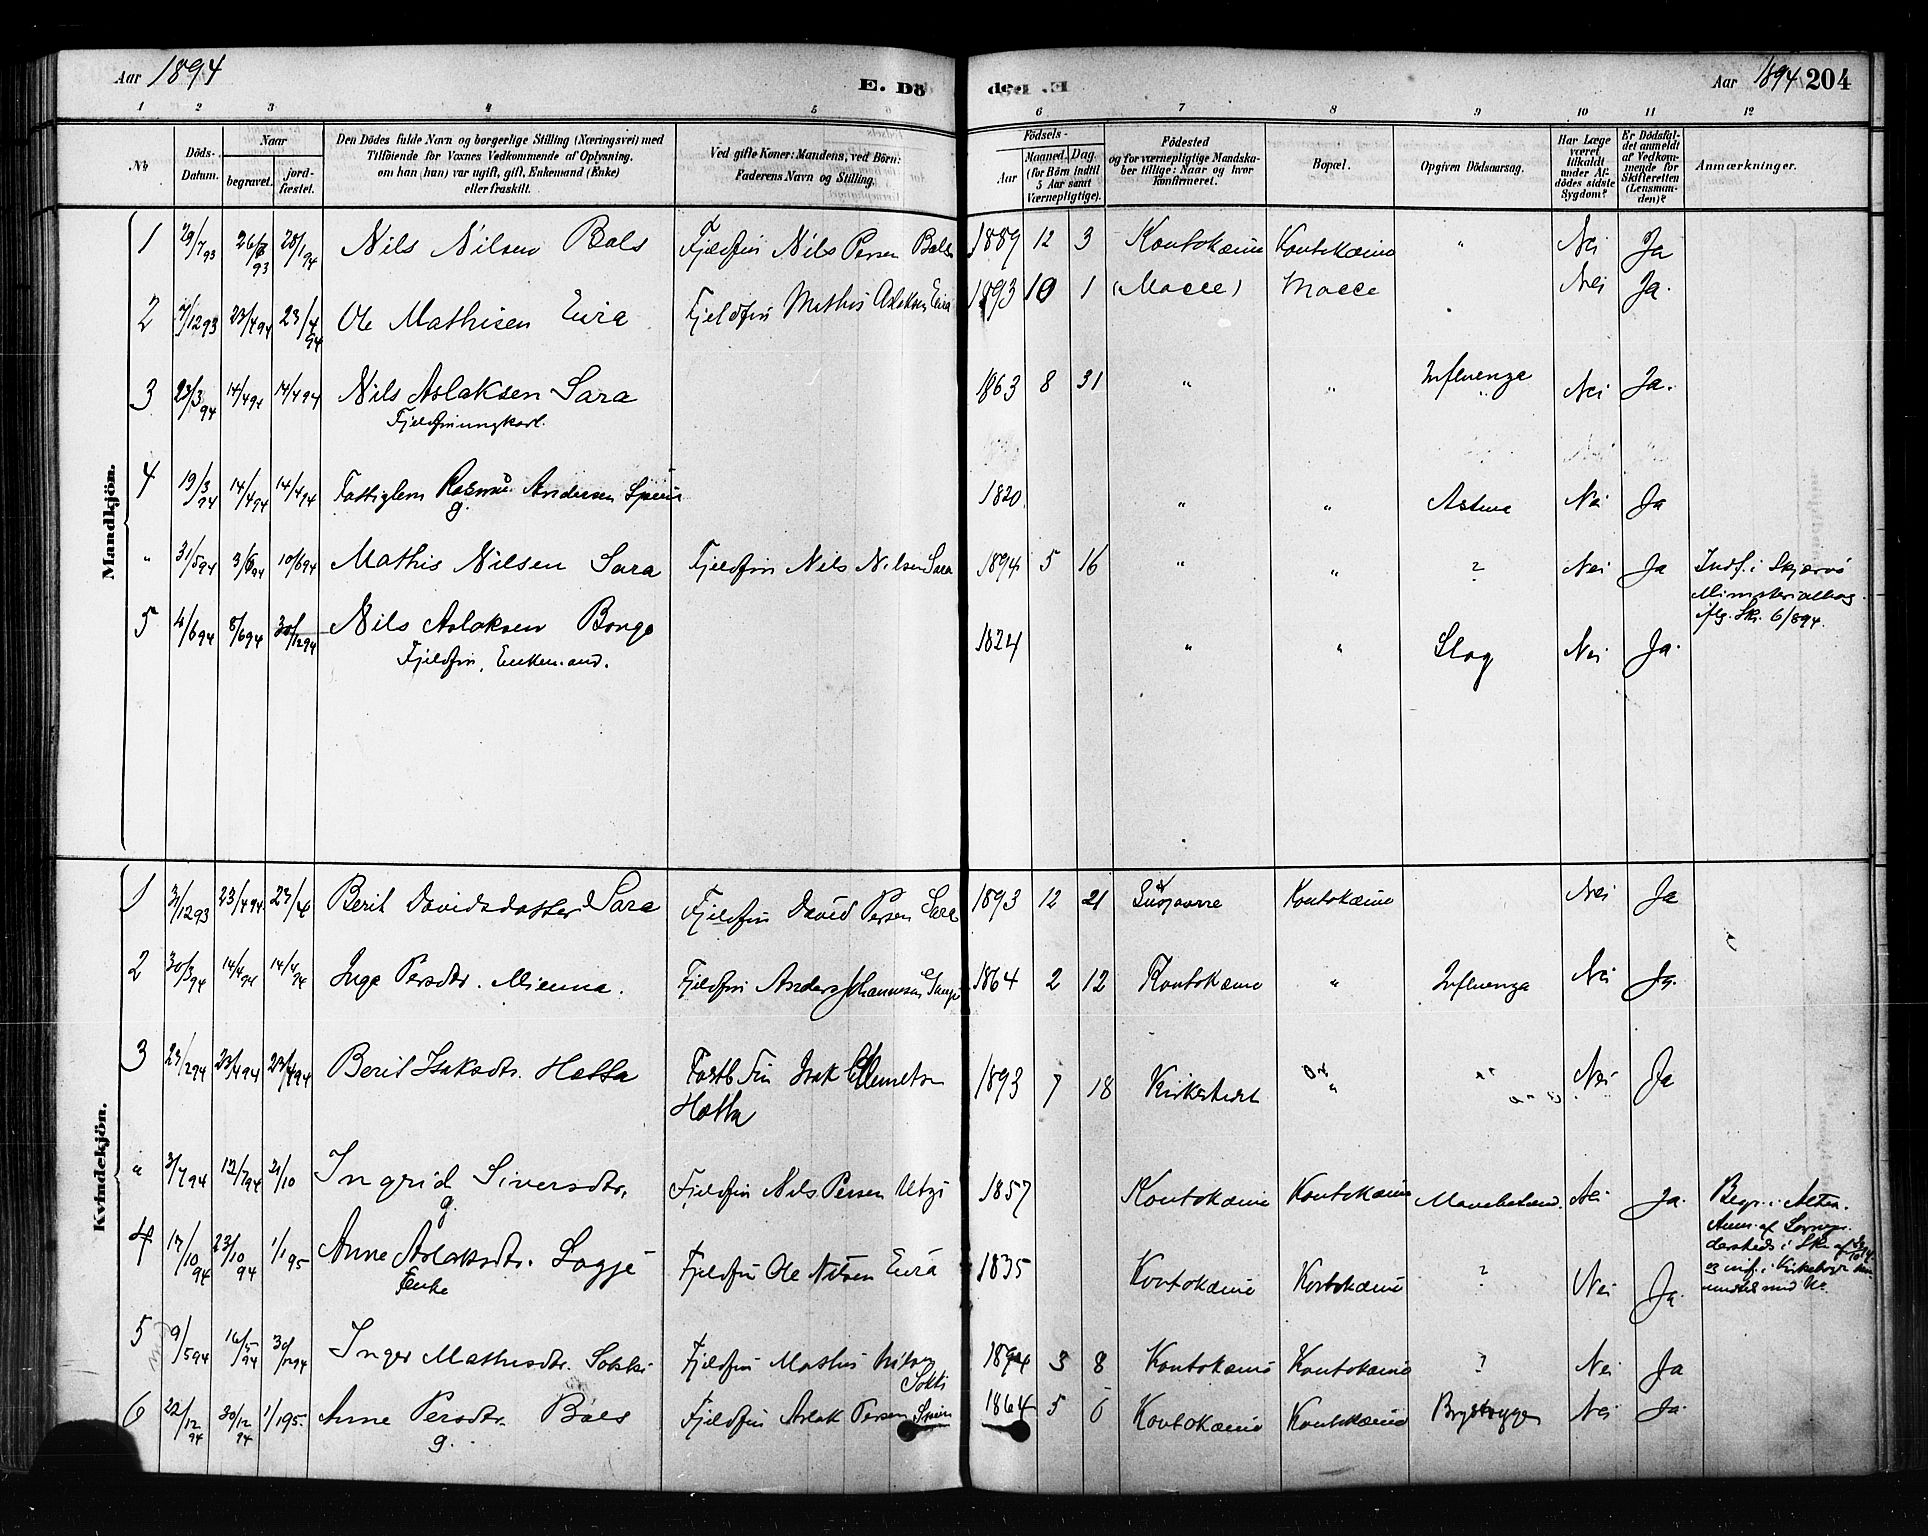 Aar 1894
E. Dö
deg .H
Aar 1894 204
1 2 3 4 5 6 7 8 9 10 11 12
No
Döds-Datum.
Naar
begravet.
jord-fæstet.
Den Dödes fulde Navn og borgerlige Stilling (Næringsvei) med
Tilföiende for Voxnes Vedkommende af Oplysning,
om han (hun) var ugift, gift, Enkemand (Enke)
eller fraskilt.
Ved gifte Koner: Mandens, ved Börn:
Faderens Navn og Stilling.
Födsels-
Aar
Maaned. Dag.
(for Börn indtil
5 Aar samt
Værnepligtige).
Födested
og for værnepligtige Mandska-
ber tillige: Naar og hvor
konfirmeret.
Bopæl.
Opgiven Dödsaarsag.
Har Læge
været
tilkaldt
under Af-
dödes sidste
Sygdom?
Er Dödsfal-
det anmeldt
af Vedkom-
mende for
Skifteretten
(Lensman-
den)?
Anmærkninger.
Mandkjön.
1 29/7 93 28/1 94 Nils Nilsen Bals Fjeldfin Nils Persen Bals 1889 12 3 Koutokæino Koutokæino " Nei Ja
2 23/4 94 23/4 94 Ole Mathisen Eira Fjeldfin Mathis Aslaksen Eira 1893 10 1 (Maece) Maece Nei Ja.
3 23/3 94 14/4 94 14/4 94 Nils Aslaksen Sara 1863 8 31 " " Influenza Nei Ja.
Fjeldfin ungkarl.
4 19/3 94 14/4 94 14/4 94 Fattiglem Rasmus Andersen Spein 1820 " " Astma Nei Ja
g.
" 31/5 94 3/6 94 10/6 94 Mathis Nilsen Sara Fjeldfin Nils Nilsen Sara 1894 5 16 " " ? Nei Ja Indf. i Skjærvö
Ministerialbog
iflg. Skr. 6/894.
5 4/6 94 8/6 94 30/12 94 Nils Aslaksen Bongo 1824 " " Slag Nei Ja.
Fjeldfin, Enkemand.
Kvindekjön.
1 31/12 93 23/4 94 23/4 Berit Davidsdatter Sara Fjeldfin David Persen Sara 1893 12 21 Koutokæino Nei Ja
2 30/3 94 14/4 94 14/4 94 Inga Persdtr. Mienna. Fjeldfin Anders Johannesen 1864 2 12 Koutokæino " Influenza Nei Ja.
3 23/2 94 23/4 94 23/4 94 Berit Isaksdtr. Hætta Fastb Fin Isak Klemetsen 1893 7 18 Kirkestedet " Nei Ja
Hætta
" 3/7 94 12/7 94 21/10 Ingrid Siversdtr. Fjeldfin Nils Persen Utzi 1857 Koutokæino Koutokæino Nei Ja. Begr. i Alten.
g.
Anm. af Sorenpr.
4 17/10 94 23/10 94 1/1 95 Anne Aslaksdtr. Logje Fjeldfin Ole Nilsen Eira 1835 Koutokæino Koutokæino ? Nei Ja.
Enke
5 9/5 94 16/5 94 Inger Mathisdtr. Sokki Fjeldfin Mathis Nilsen 1894 3 8 Koutokæino Koutokæino ? Nei Ja
Sokki
6 22/12 94 30/12 94 1/1 95. Anne Persdtr. Bals Fjeldfin Aslak Persen Spein 1864 5 6 Koutokæino Koutokæino Nei Ja.
g.